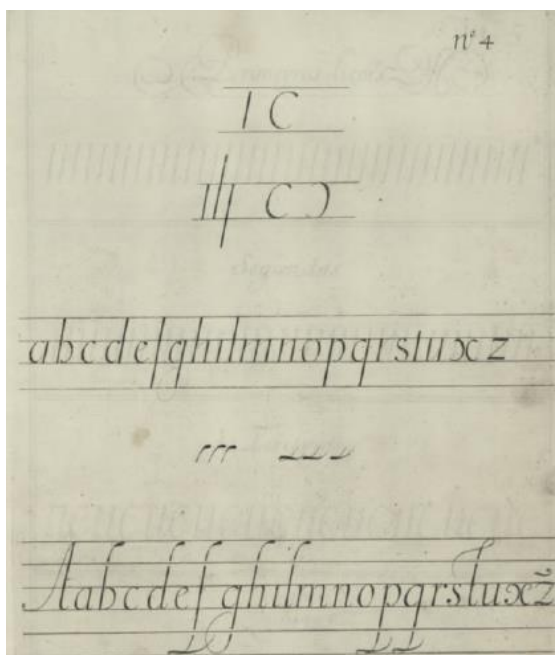 nº 4
I C
C Ɔ
abcdefghilmnopqrstuxz
Aabcdefghilmnopqrstuxz